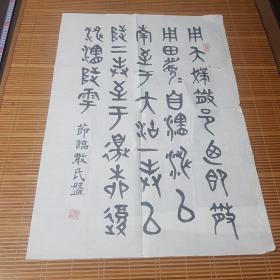 用夨撲散邑迺即散
用田眉自瀗涉以
南至于大沽一封以
陟二封至于邊柳復
涉瀗陟雩
節臨散氏盤